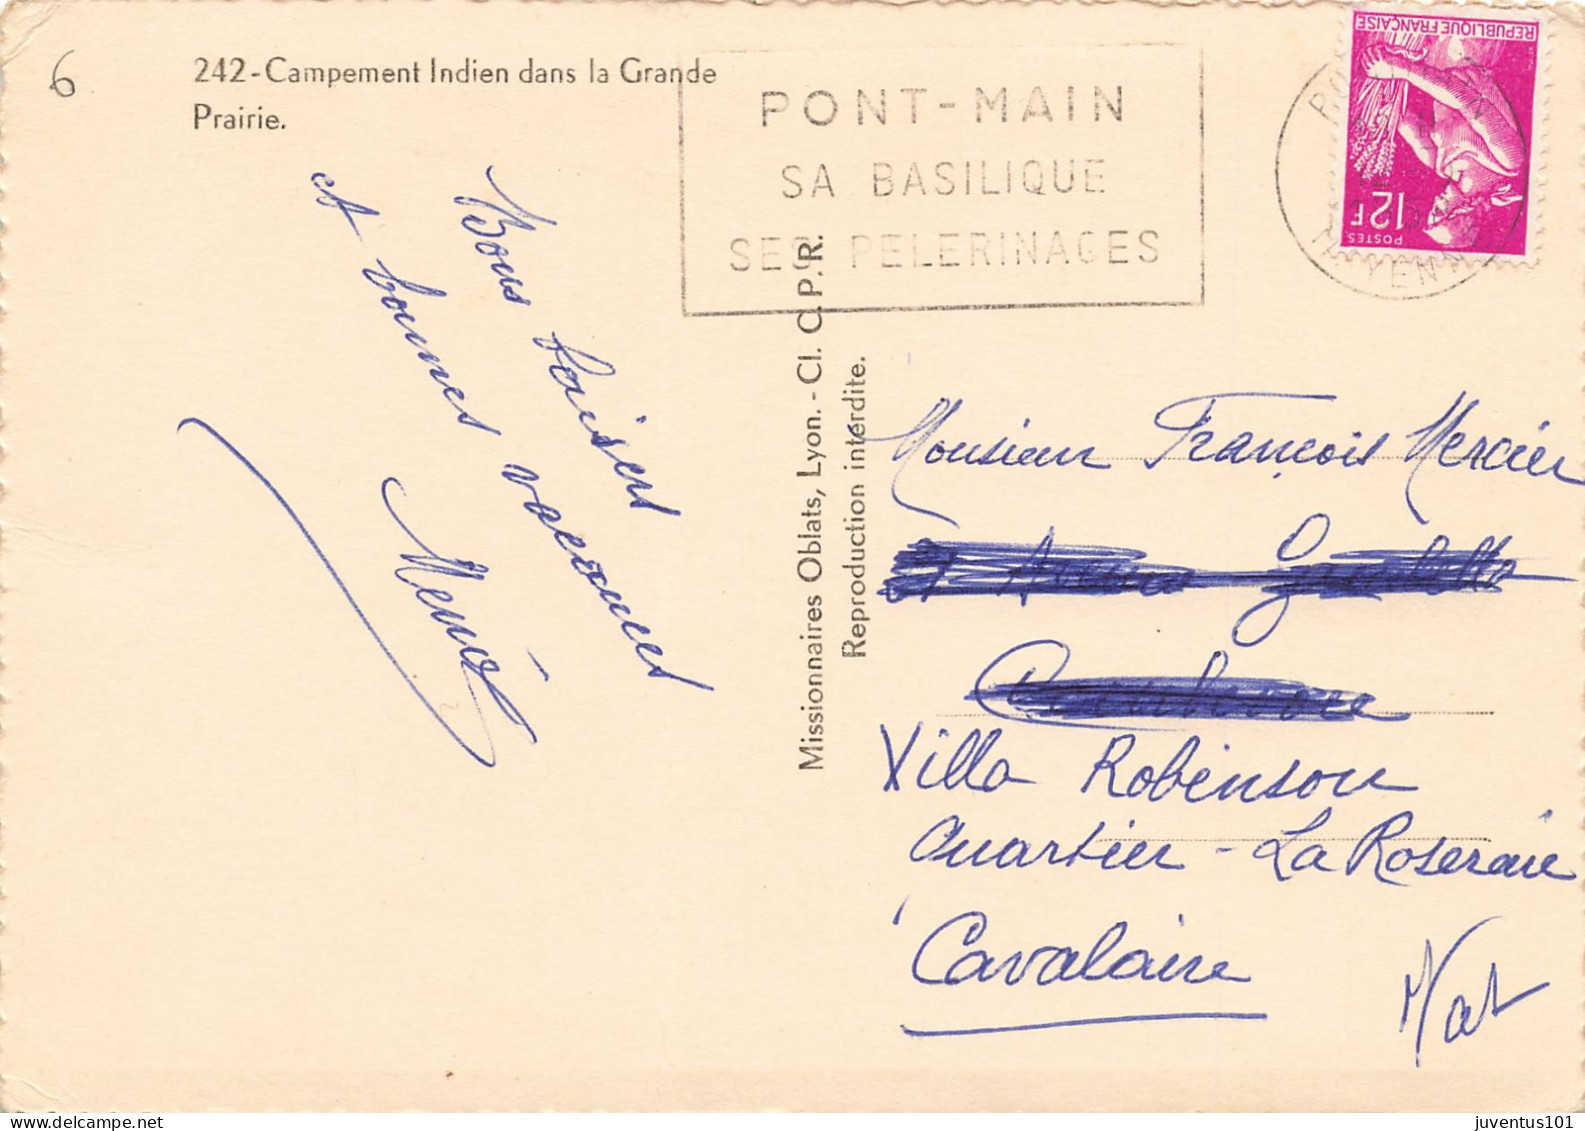 6
242-Campement Indien dans la Grande
Prairie.
PONT-MAIN
SA BASILIQUE
SES PELERINAGES
REPUBLIQUE FRANÇAISE
12F
POSTES
Bons baisers
et bonnes vacances
Missionnaires Oblats, Lyon.-Cl. C.P.R.
Reproduction interdite.
Monsieur François Mercier
Villa Robinson
Quartier - La Roseraie
Cavalaire
juventus101